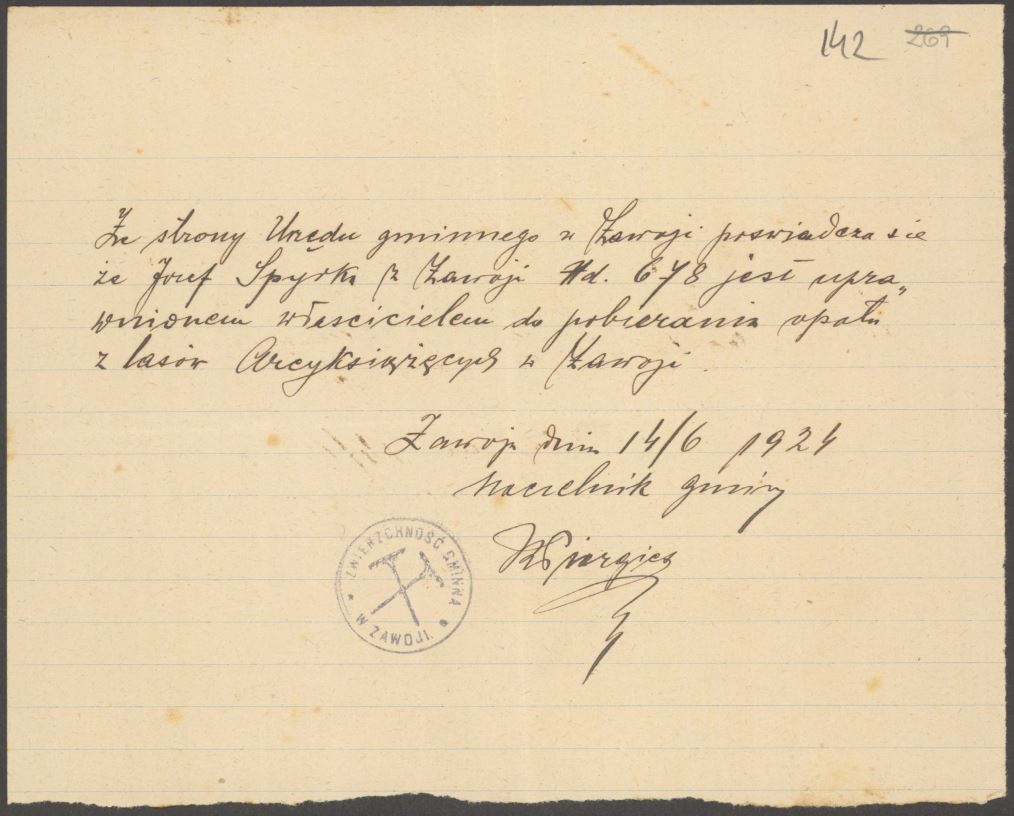 142 269
Ze strony Urzędu gminnego w Zawoji poswiadcza sie
że Josef Spyrka z Zawoji Nd. 678 jest upra„
wnionem włascicielem do pobierania opału
z lasów Arcyksiążęcych w Zawoji.
Zawoja dnia 14/6 1924
Naczelnik gminy
ZWIERZCHNOŚĆ GMINNA
W ZAWOJI.